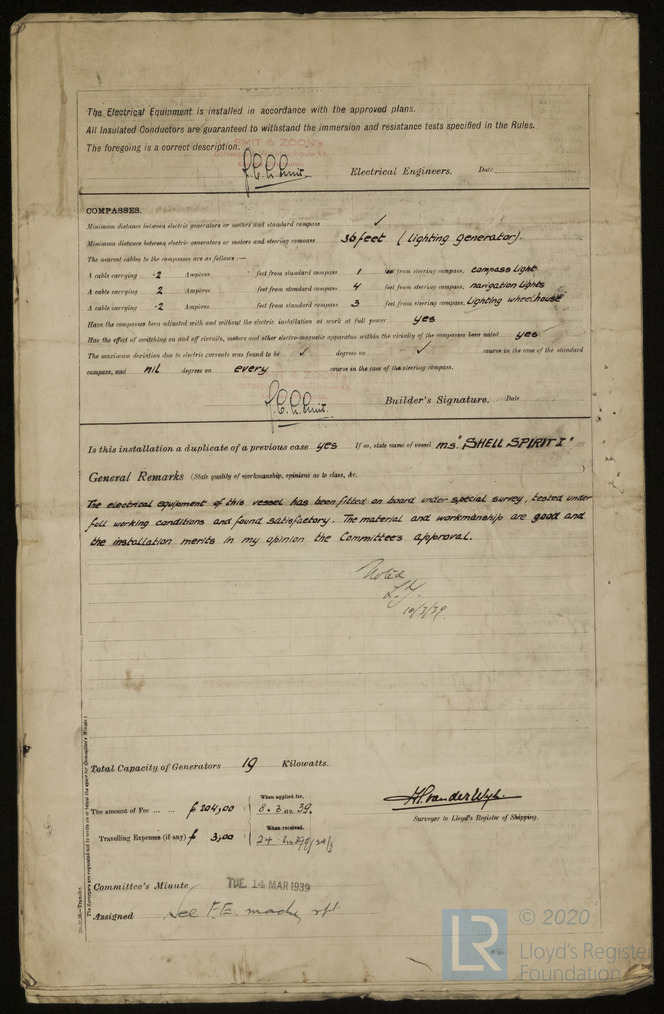 The Electrical Equipment is installed in accordance with the approved plans.
All Insulated Conductors are guaranteed to withstand the immersion and resistance tests specified in the Rules.
The foregoing is a correct description.
SMIT & ZOON's
Electrical Engineers. Date
COMPASSES.
Minimum distance between electric generators or motors and standard compass ✓
Minimum distance between electric generators or motors and steering compass 36 feet (Lighting generator).
The nearest cables to the compasses are as follows:—
A cable carrying .2 Ampères feet from standard compass 1 feet from steering compass. compass light
A cable carrying 2 Ampères feet from standard compass 4 feet from steering compass. navigation lights
A cable carrying .2 Ampères feet from standard compass 3 feet from steering compass. Lighting wheelhouse
Have the compasses been adjusted with and without the electric installation at work at full power yes
Has the effect of switching on and off circuits, motors and other electro-magnetic apparatus within the vicinity of the compasses been noted yes
The maximum deviation due to electric currents was found to be ✓ degrees on ✓ course in the case of the standard
compass, and nil degrees on every course in the case of the steering compass.
SMIT & ZOON
Builder's Signature. Date
Is this installation a duplicate of a previous case yes If so, state name of vessel m.s. "SHELL SPIRIT I"
General Remarks (State quality of workmanship, opinions as to class, &c.
The electrical equipment of this vessel has been fitted on board under special survey, tested under
full working conditions and found satisfactory. The material and workmanship are good and
the installation merits in my opinion the Committee's approval.
Noted
10/3/39.
Total Capacity of Generators 19 Kilowatts.
When applied for,
The amount of Fee ... ... £ 204,00 8.3.1939.
When received,
Travelling Expenses (if any) £ 3,00
Surveyor to Lloyd's Register of Shipping.
Committee's Minute TUE. 14 MAR 1939
Assigned See F.E. machy rpt.
The Surveyors are requested not to write on or below the space for Committee's Minute.)
© 2020
LR
Lloyd's Register
Foundation